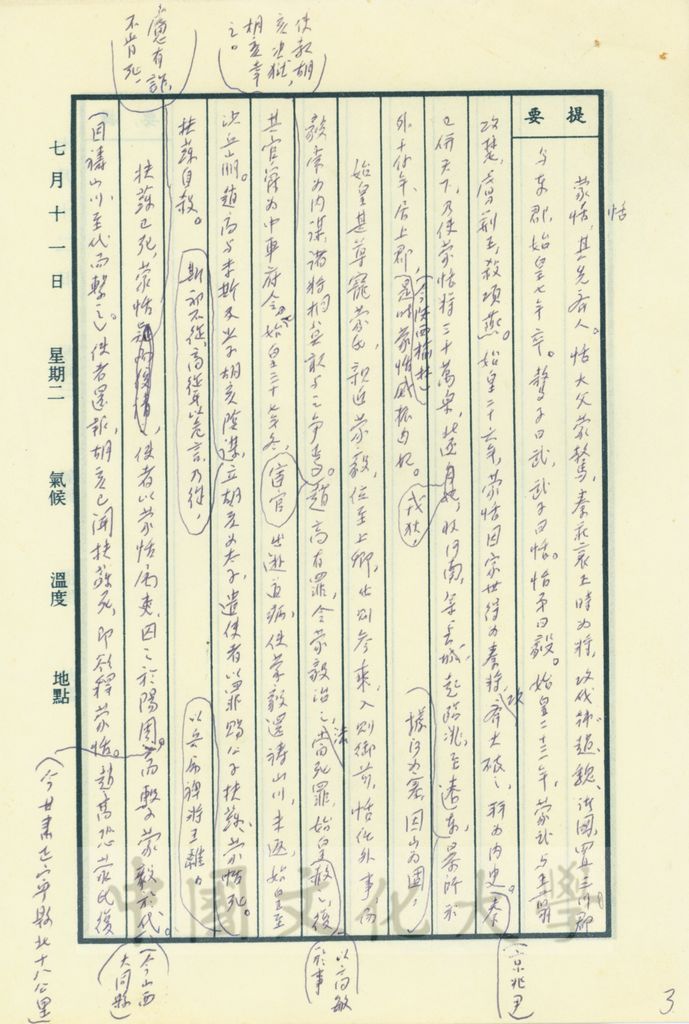 提要
蒙恬,其先齊人。恬大父蒙驁,秦昭襄王時為將,攻伐韓趙魏諸國,置三川郡
與東郡,始皇七年卒。驁子曰武,武子曰恬。恬弟曰毅。始皇二十三年,蒙武與王翦
攻楚,虜荊王,殺項燕。始皇二十六年,蒙恬因家世得為秦將,攻齊大破之,拜為內史(京兆尹)。秦
已併天下,乃使蒙恬將三十萬眾,北逐戎狄,收河南,築長城,起臨洮,至遼東,(據河為塞,因山為固,)暴師於
外十餘年,居上郡,(今陝西榆林)是時蒙恬威振匈奴。
始皇甚尊寵蒙氏,親近蒙毅,位至上卿,出則參乘,入則御前,恬任外事,而
毅常為內謀,諸將相莫敢與之爭焉。趙高有罪,令蒙毅治之,當死罪,始皇赦之,復
其官爵為中車府令。始皇三十七年冬,
沙丘崩。趙高與李斯及少子胡亥陰謀,立胡亥為太子,遣使者以罪賜公子扶蘇、蒙恬死。
斯初不從,高繼以危言,乃從,
扶蘇自殺。
以兵屬裨將王離。
扶蘇已死,蒙恬
慮有詐,
不肯死,
使者以蒙恬屬吏,囚之於陽周,而繫蒙毅於代。
(今山西
大同縣)
(因禱山川至代而繫之)使者還報,胡亥已聞扶蘇死,即欲釋蒙恬。趙高恐蒙氏復
(今甘肅正寧縣北十八公里)
以高敏
於事
宦官
七月十一日 星期二 氣候 溫度 地點
中國文化大學
3